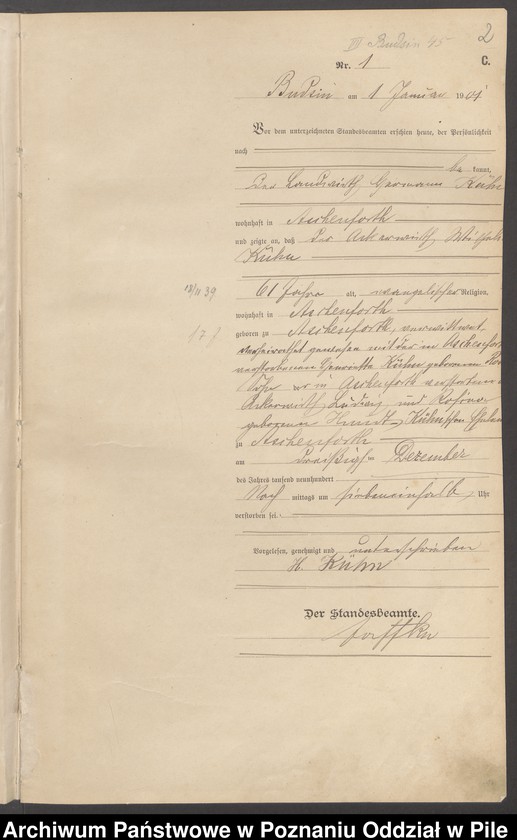 2
III Budsin 45
C.
Nr. 1
Budsin am 1 Januar 1901
Vor dem unterzeichneten Standesbeamten erschien heute, der Persönlichkeit
nach
be kannt,
der Landwirth Hermann Kühn
wohnhaft in Aschenforth
und zeigte an, daß der Ackerwirth
Kühn
61 Jahre alt, evangelischer Religion,
wohnhaft in Aschenforth
geboren zu Aschenforth, verwittwet,
verheirathet gewesen mit der in Aschenforth
verstorbenen Henriette Kühn geborenen
Sohn der in Aschenforth verstorbenen
Ackerwirth Ludwig und Rosine
geborenen Kühn'schen
zu Aschenforth
am dreißigsten Dezember
des Jahres tausend neunhundert
Nach mittags um siebeneinhalb Uhr
verstorben sei.
Vorgelesen, genehmigt und unterschrieben
H. Kühn
Der Standesbeamte.
Archiwum Państwowe w Poznaniu Oddział w Pile